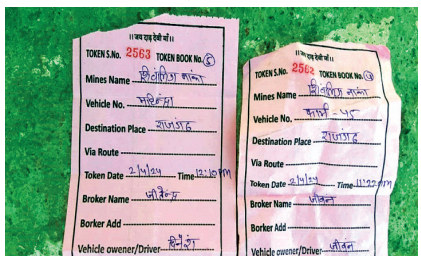 ॥जय दाड़ देवी माँ॥
TOKEN S.No. 2563 TOKEN BOOK No. 5
Mines Name
Vehicle No.
Destination Place राजगढ़
Via Route
Token Date 2/4/24 Time 12:10 PM
Broker Name
Borker Add
Vehicle owener/Driver
॥जय दाड़ देवी माँ॥
TOKEN S.No. 2562 TOKEN BOOK No.
Mines Name
Vehicle No. - 45
Destination Place राजगढ़
Via Route
Token Date 2/4/24 Time 11:22 PM
Broker Name जीवन
Borker Add
Vehicle owener/Driver जीवन